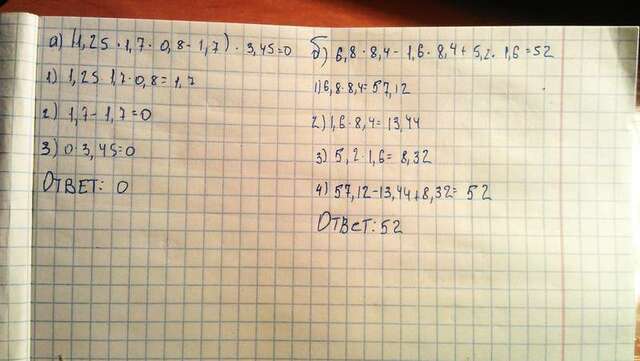 а) (1,25 · 1,7 · 0,8 - 1,7) · 3,45=0
1) 1,25 1,7·0,8=1,7
2) 1,7-1,7=0
3) 0·3,45=0
ОТВЕТ: 0
б) 6,8 · 8,4 - 1,6 · 8,4 + 5,2 · 1,6 = 52
1) 6,8·8,4=57,12
2) 1,6·8,4=13,44
3) 5,2·1,6=8,32
4) 57,12-13,44+8,32= 52
ОТВЕТ: 52